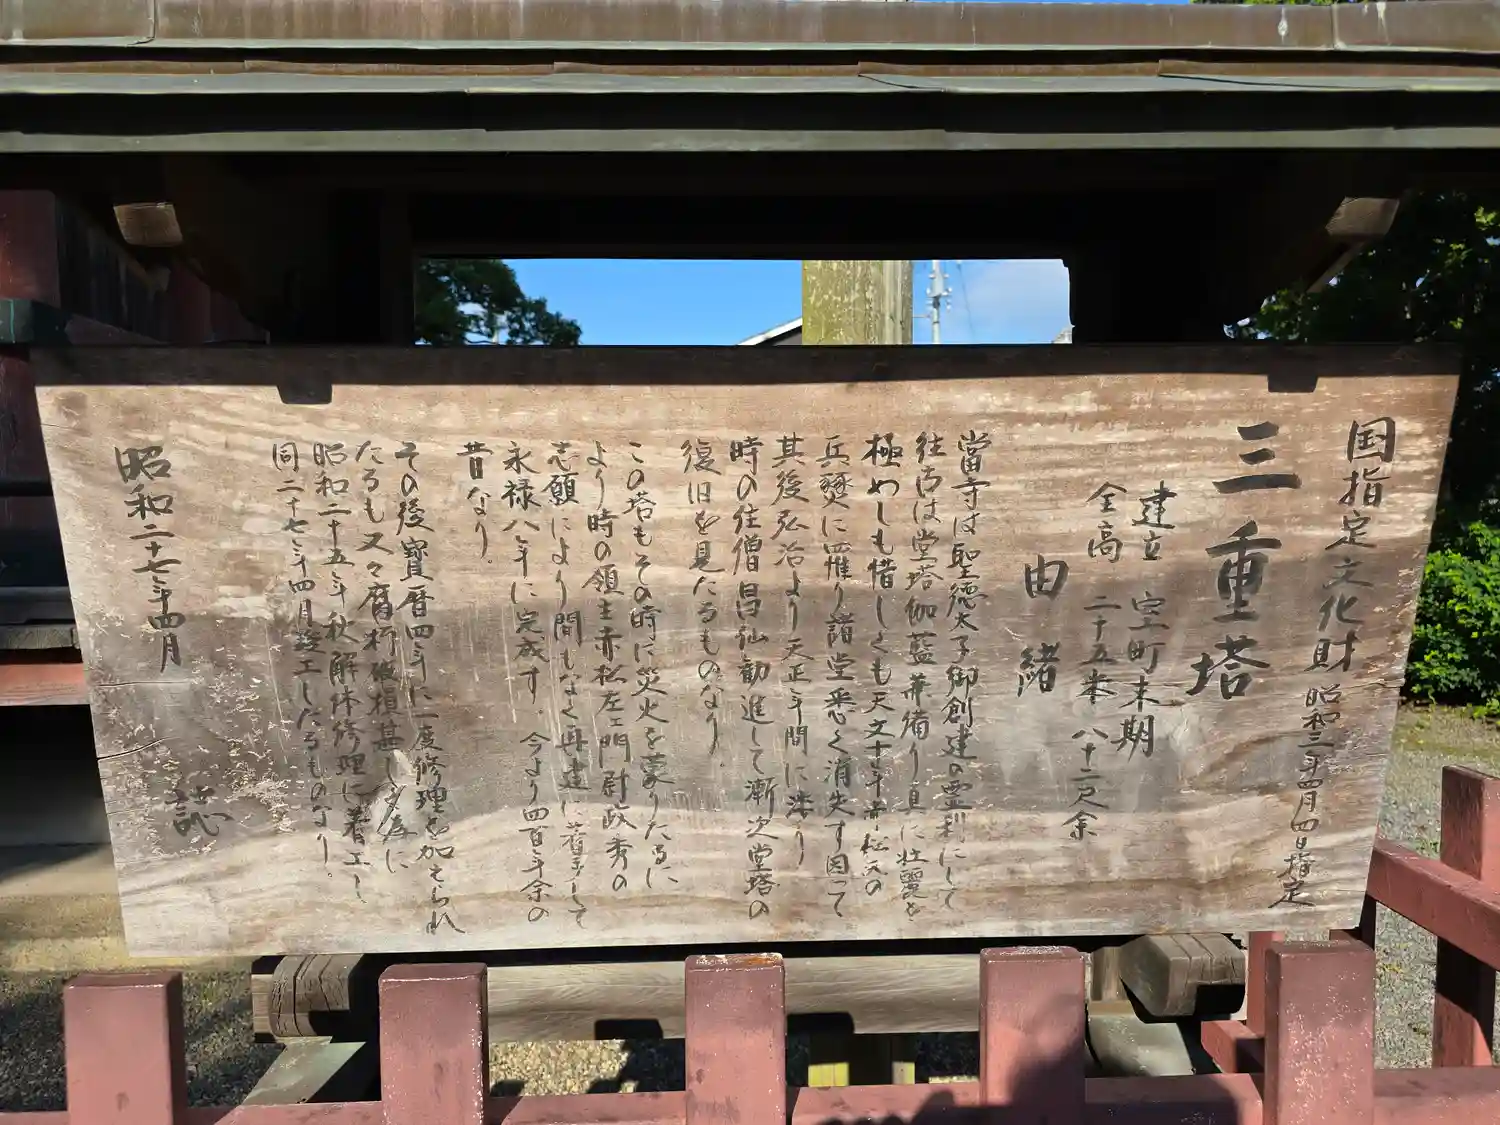 国指定文化財 昭和三年四月四日指定
三重塔
建立 室町末期
全高 二十五米 八十二尺余
由緒
當寺は聖徳太子御創建の霊刹にして
往古は堂塔伽藍兼備り具に壮麗を
極めしも惜しくも天文十年赤松氏の
兵燹に罹り諸堂悉く消失す因って
其後弘治より天正年間に渉り
時の住僧昌仙勧進して漸次堂塔の
復旧を見たるものなり
この塔もその時に災火を蒙りたるに
より時の領主赤松左ェ門尉政秀の
志願により間もなく再建に着手して
永禄八年に完成す．今より四百年余の
昔なり．
その後寳暦四年に一度修理を加えられ
たるも又々腐朽破損甚し為に
昭和二十五年秋解体修理に着工し
同二十七年四月竣工したるものなり．
昭和二十七年四月
誌